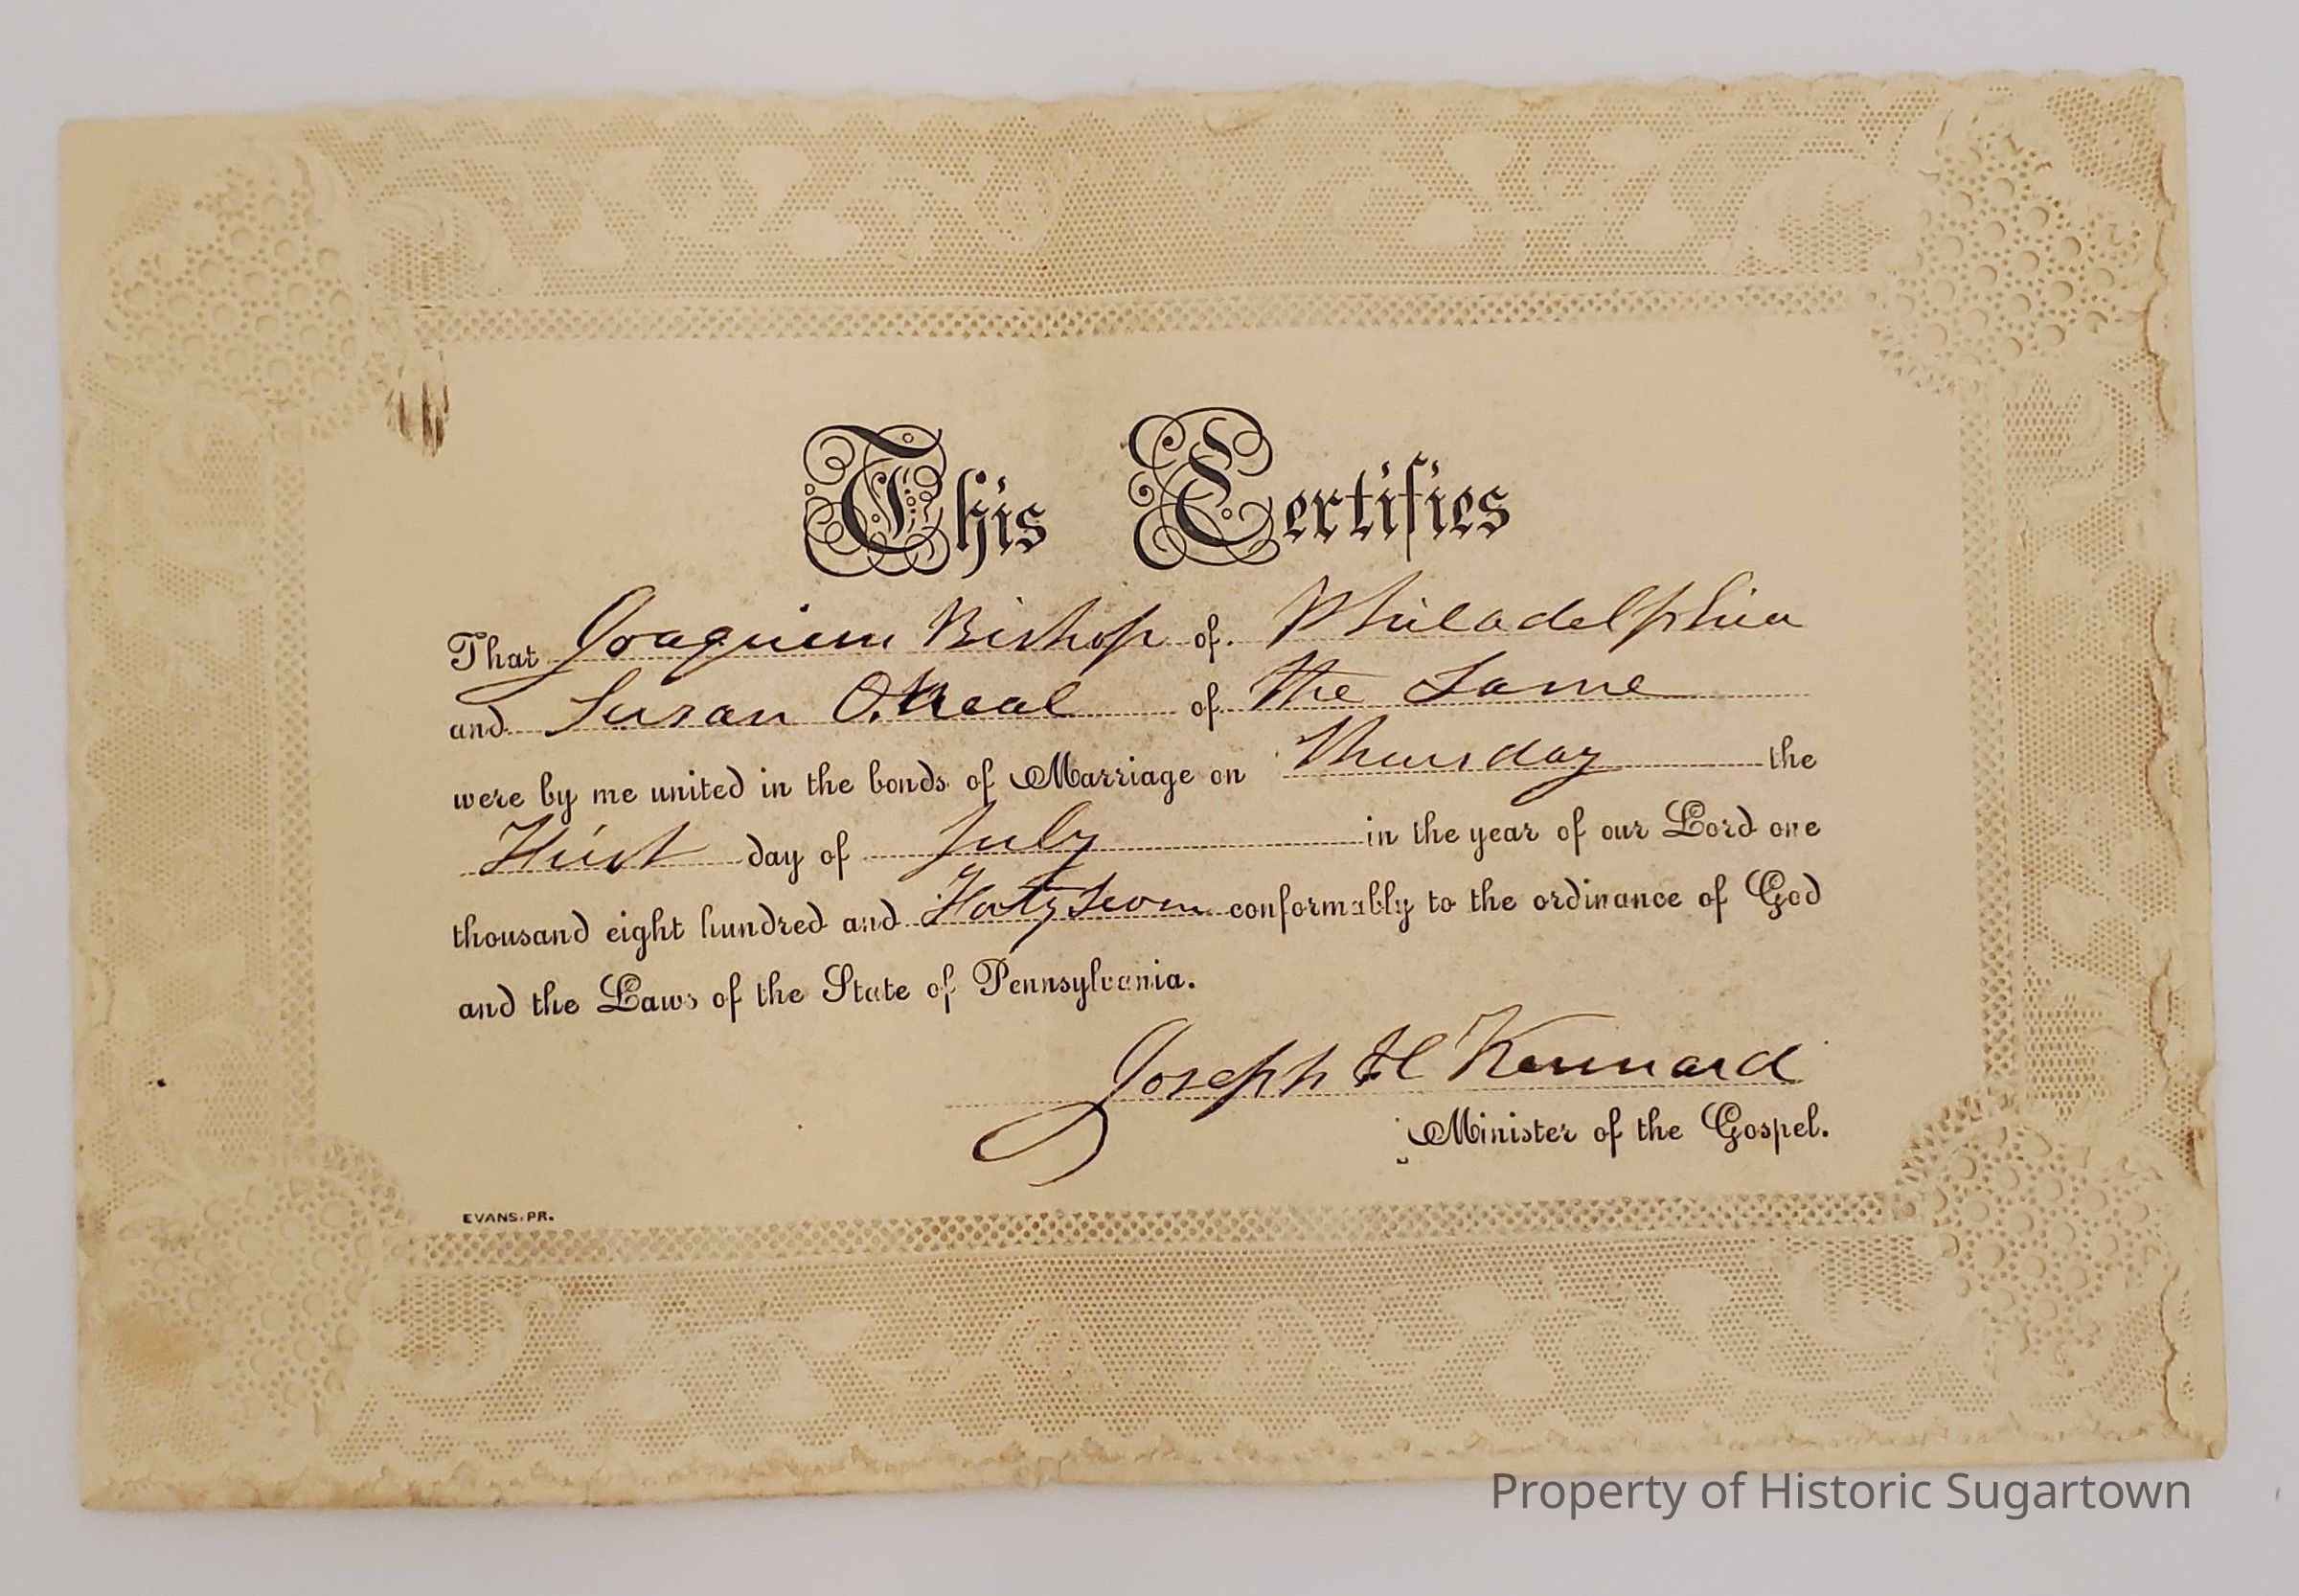 This Certifies
That Joaquim Bishop of Philadelphia
and Susan O.Neal of the Same
were by me united in the bonds of Marriage on Thursday the
First day of July in the year of our Lord one
thousand eight hundred and conformably to the ordinance of God
and the Laws of the State of Pennsylvania.
Joseph H Kennard
Minister of the Gospel.
EVANS, PR.
Property of Historic Sugartown